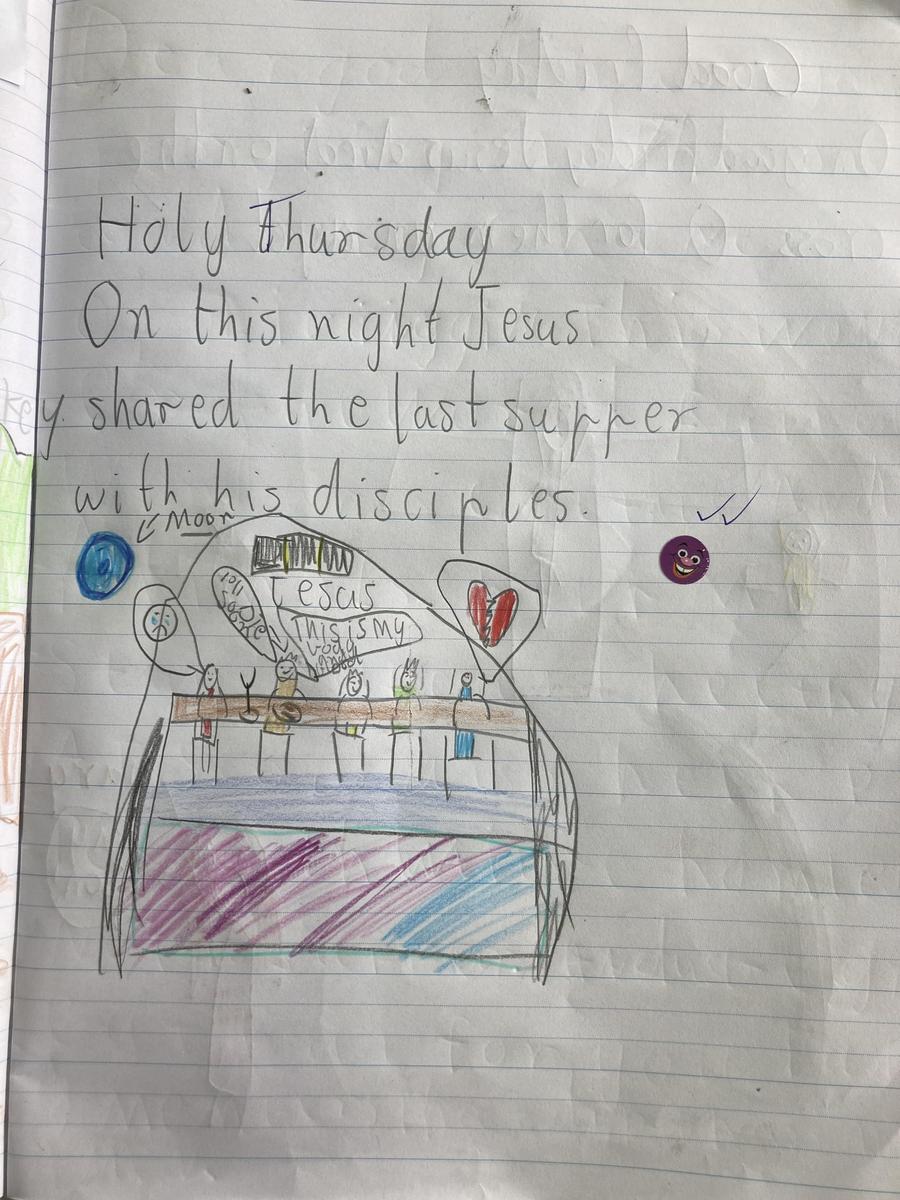 Holy Thursday
On this night Jesus
shared the last supper
with his disciples.
Moon
Jesus
This is my
body